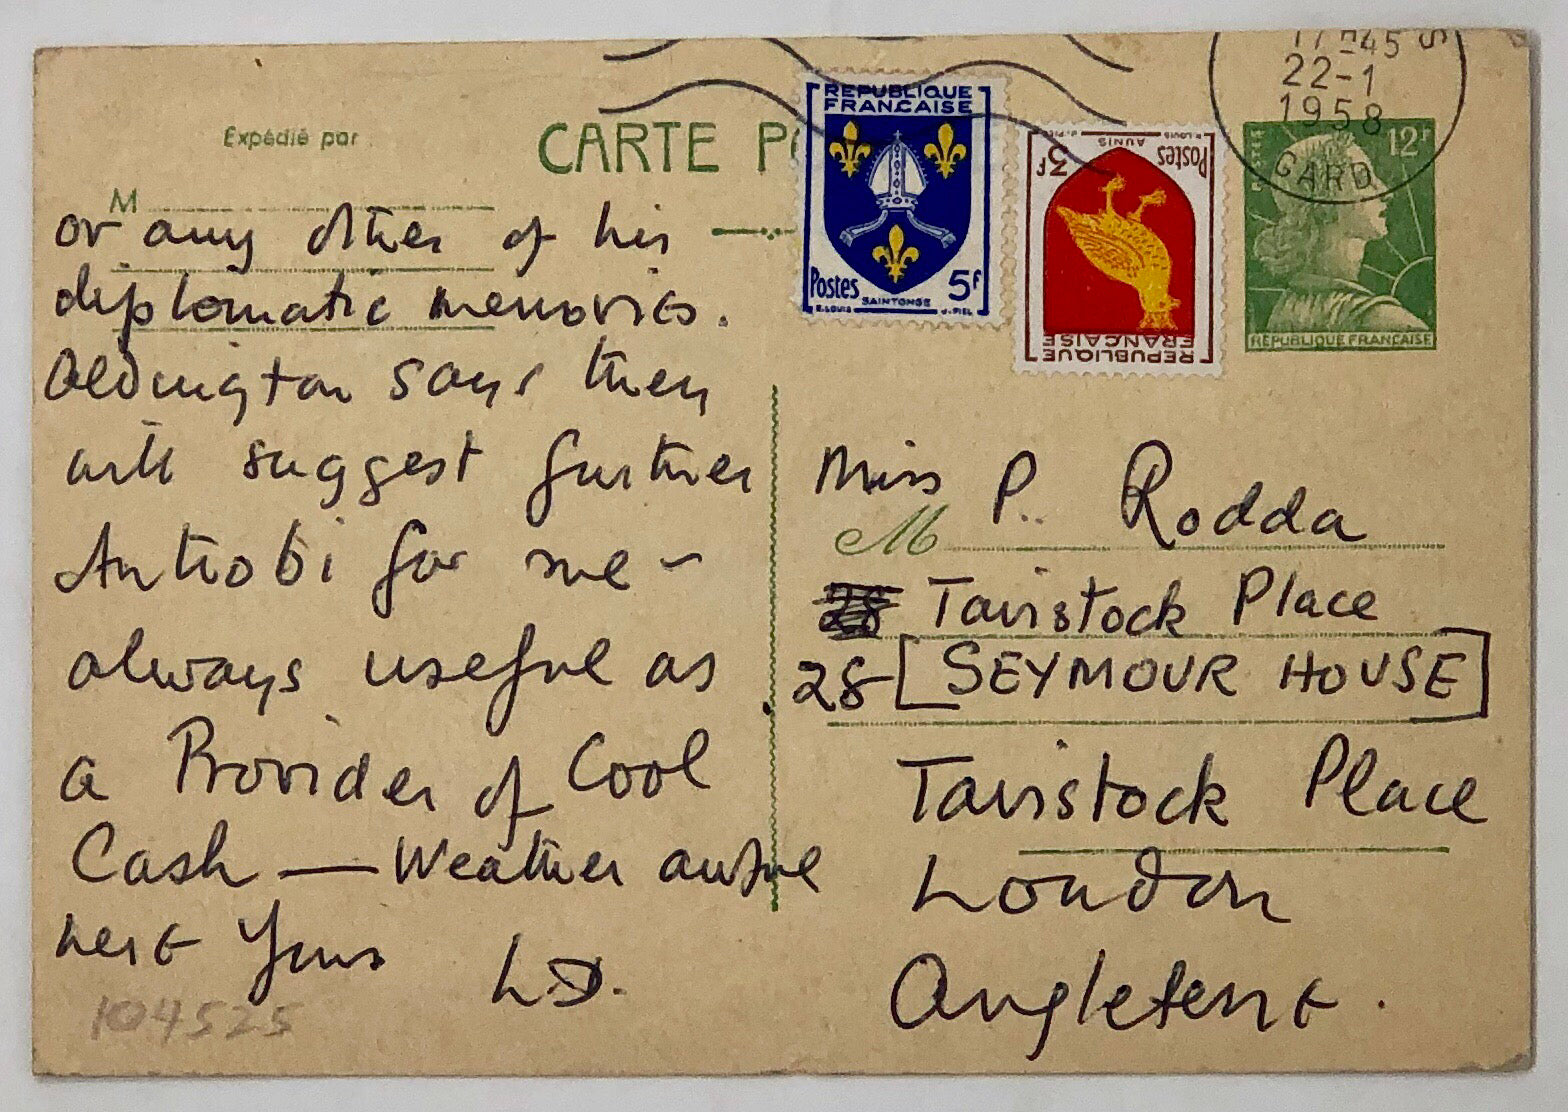 17H-45
22-1
1958
GARD
REPUBLIQUE
FRANCAISE
Postes 5F
SAINTONGE
E.LOUIS J.PIEL
REPUBLIQUE
FRANCAISE
Postes 3F
AUNIS
12F
REPUBLIQUE FRANCAISE
Expédié par
CARTE P
M
or any other of his
diplomatic memories.
Aldington says they
will suggest further
Antrobi for me –
always useful as
a Provider of Cool
Cash — Weather awful
here Yours
L.D.
104525
Miss P. Rodda
M
Tavistock Place
28 [SEYMOUR HOUSE]
Tavistock Place
London
Angleterre.